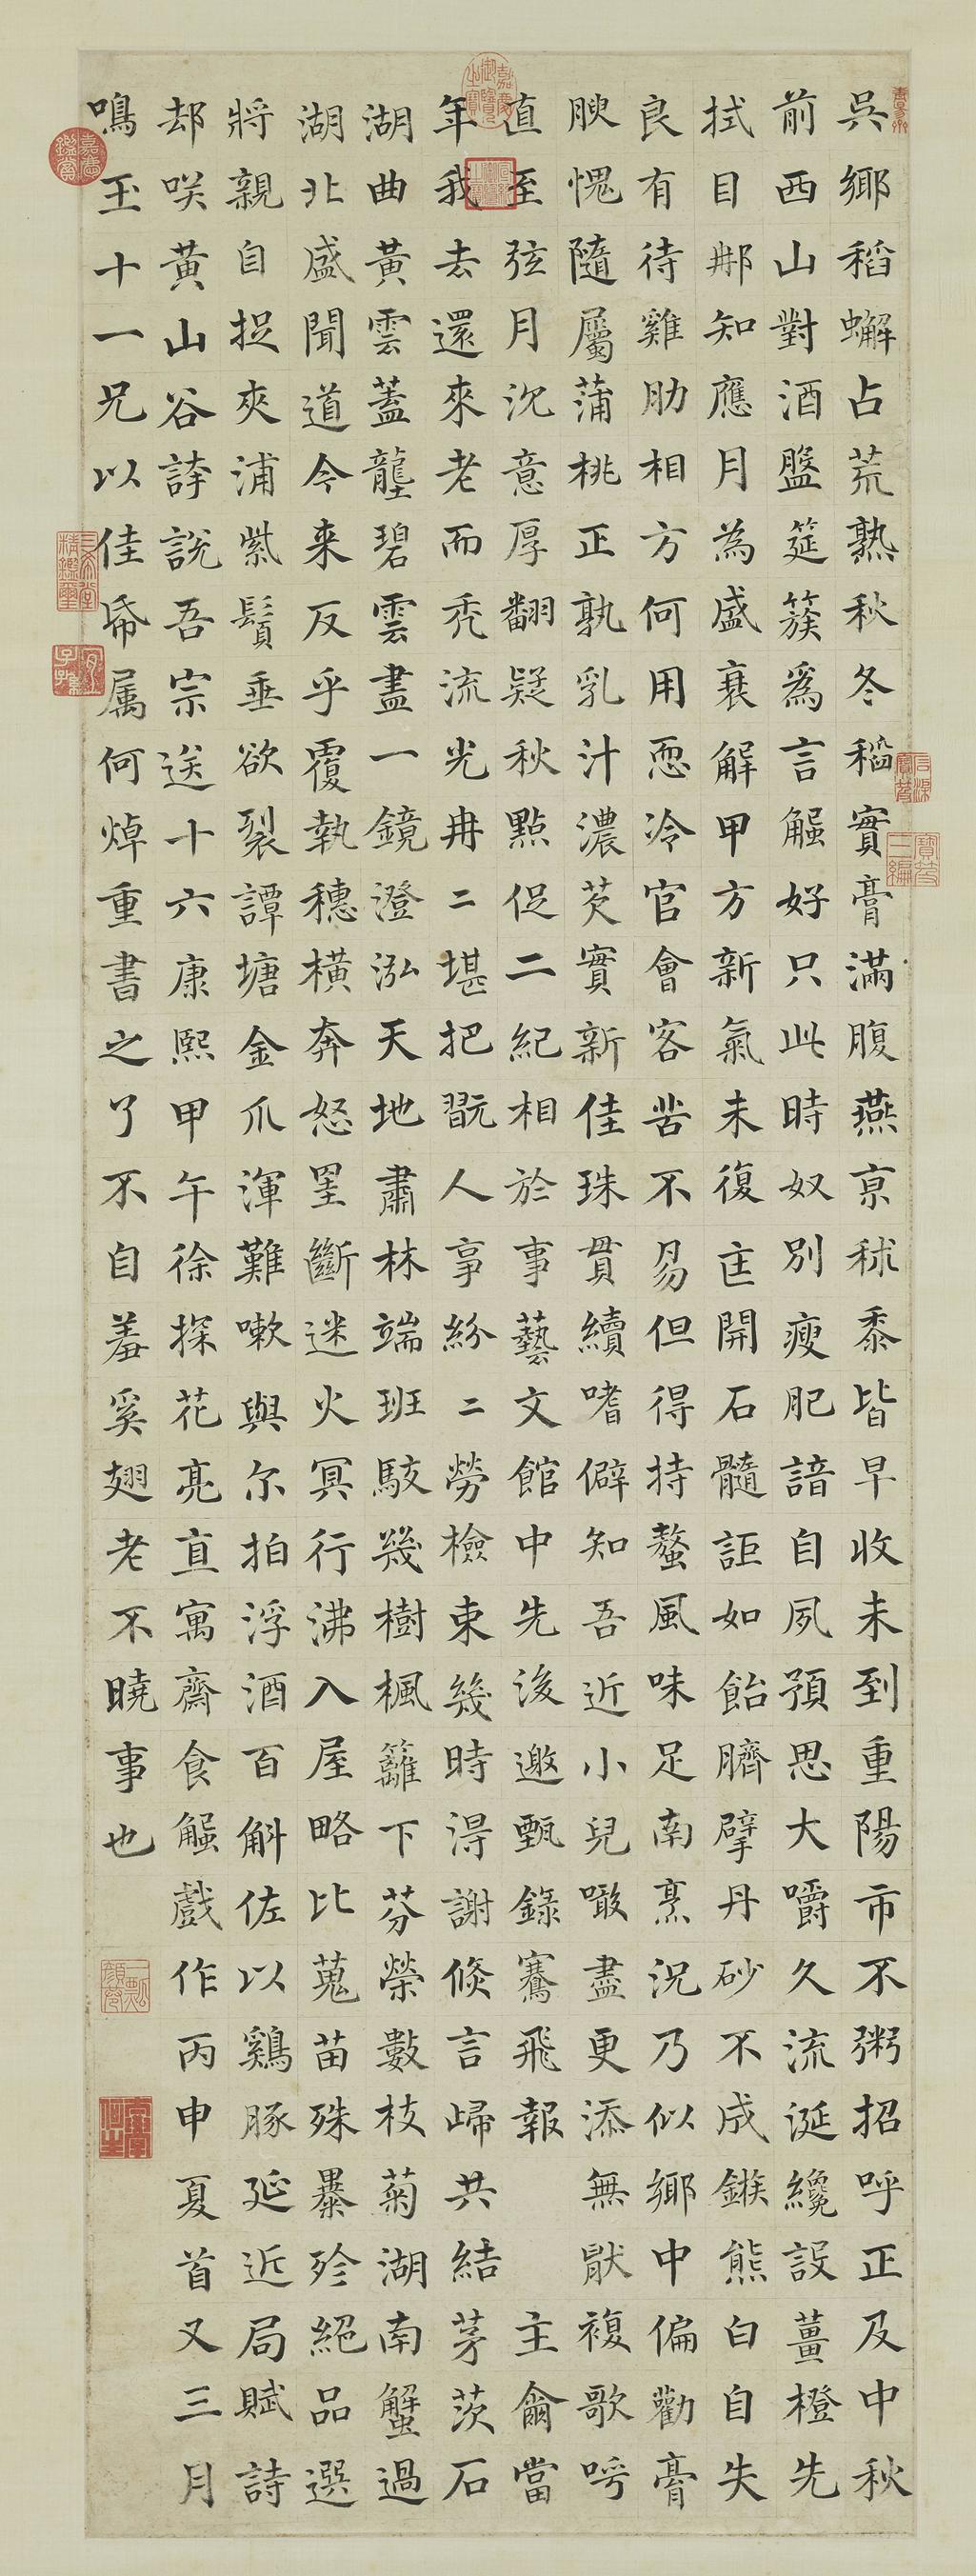 吳鄉稻蠏占荒熟秋冬稻實膏滿腹燕京秫黍皆早收未到重陽市不粥招呼正及中秋
前西山對酒盤筵簇為言觜好只此時奴別瘦肥諳自夙預思大嚼久流涎纔設薑橙先
拭目那知應月為盛衰解甲方新氣未復匡開石髓詎如飴臍擘丹砂不成鏃熊白自失
良有待雞肋相方何用惡冷官會客苦不易但得持螯風味足南烹況乃似鄉中偏勸膏
腴愧隨屬蒲桃正孰乳汁濃芡實新佳珠貫續嗜僻知吾近小兒噉盡更添無厭複歌呼
直至弦月沉意厚翻疑秋點促二紀相於事藝文館中先後邀甄錄騫飛報主龠當
年我去還來老而禿流光冉二堪把翫人事紛二勞檢束幾時得謝倐言歸共結茅茨石
湖曲黃雲蓋龍碧雲盡一鏡澄泓天地肅林端班駮幾樹楓籬下芬榮數枝菊湖南蟹過
湖北盛聞道今来反乎覆執穗橫奔怒罣斷迷火冥行沸入屋略比蒐苗殊暴殄絕品選
將親自捉夾浦紫鬚垂欲裂譚塘金爪渾難嗽與尔拍浮酒百斛佐以鷄豚延近局賦詩
却咲黃山谷誇說吾宗送十六康熙甲午徐探花亮直寓齋食觜戲作丙申夏首又三月
鳴玉十一兄以佳帋属何焯重書之了不自羞奚翅老不曉事也